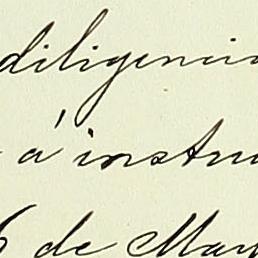 diligencia
á instru
6 de May